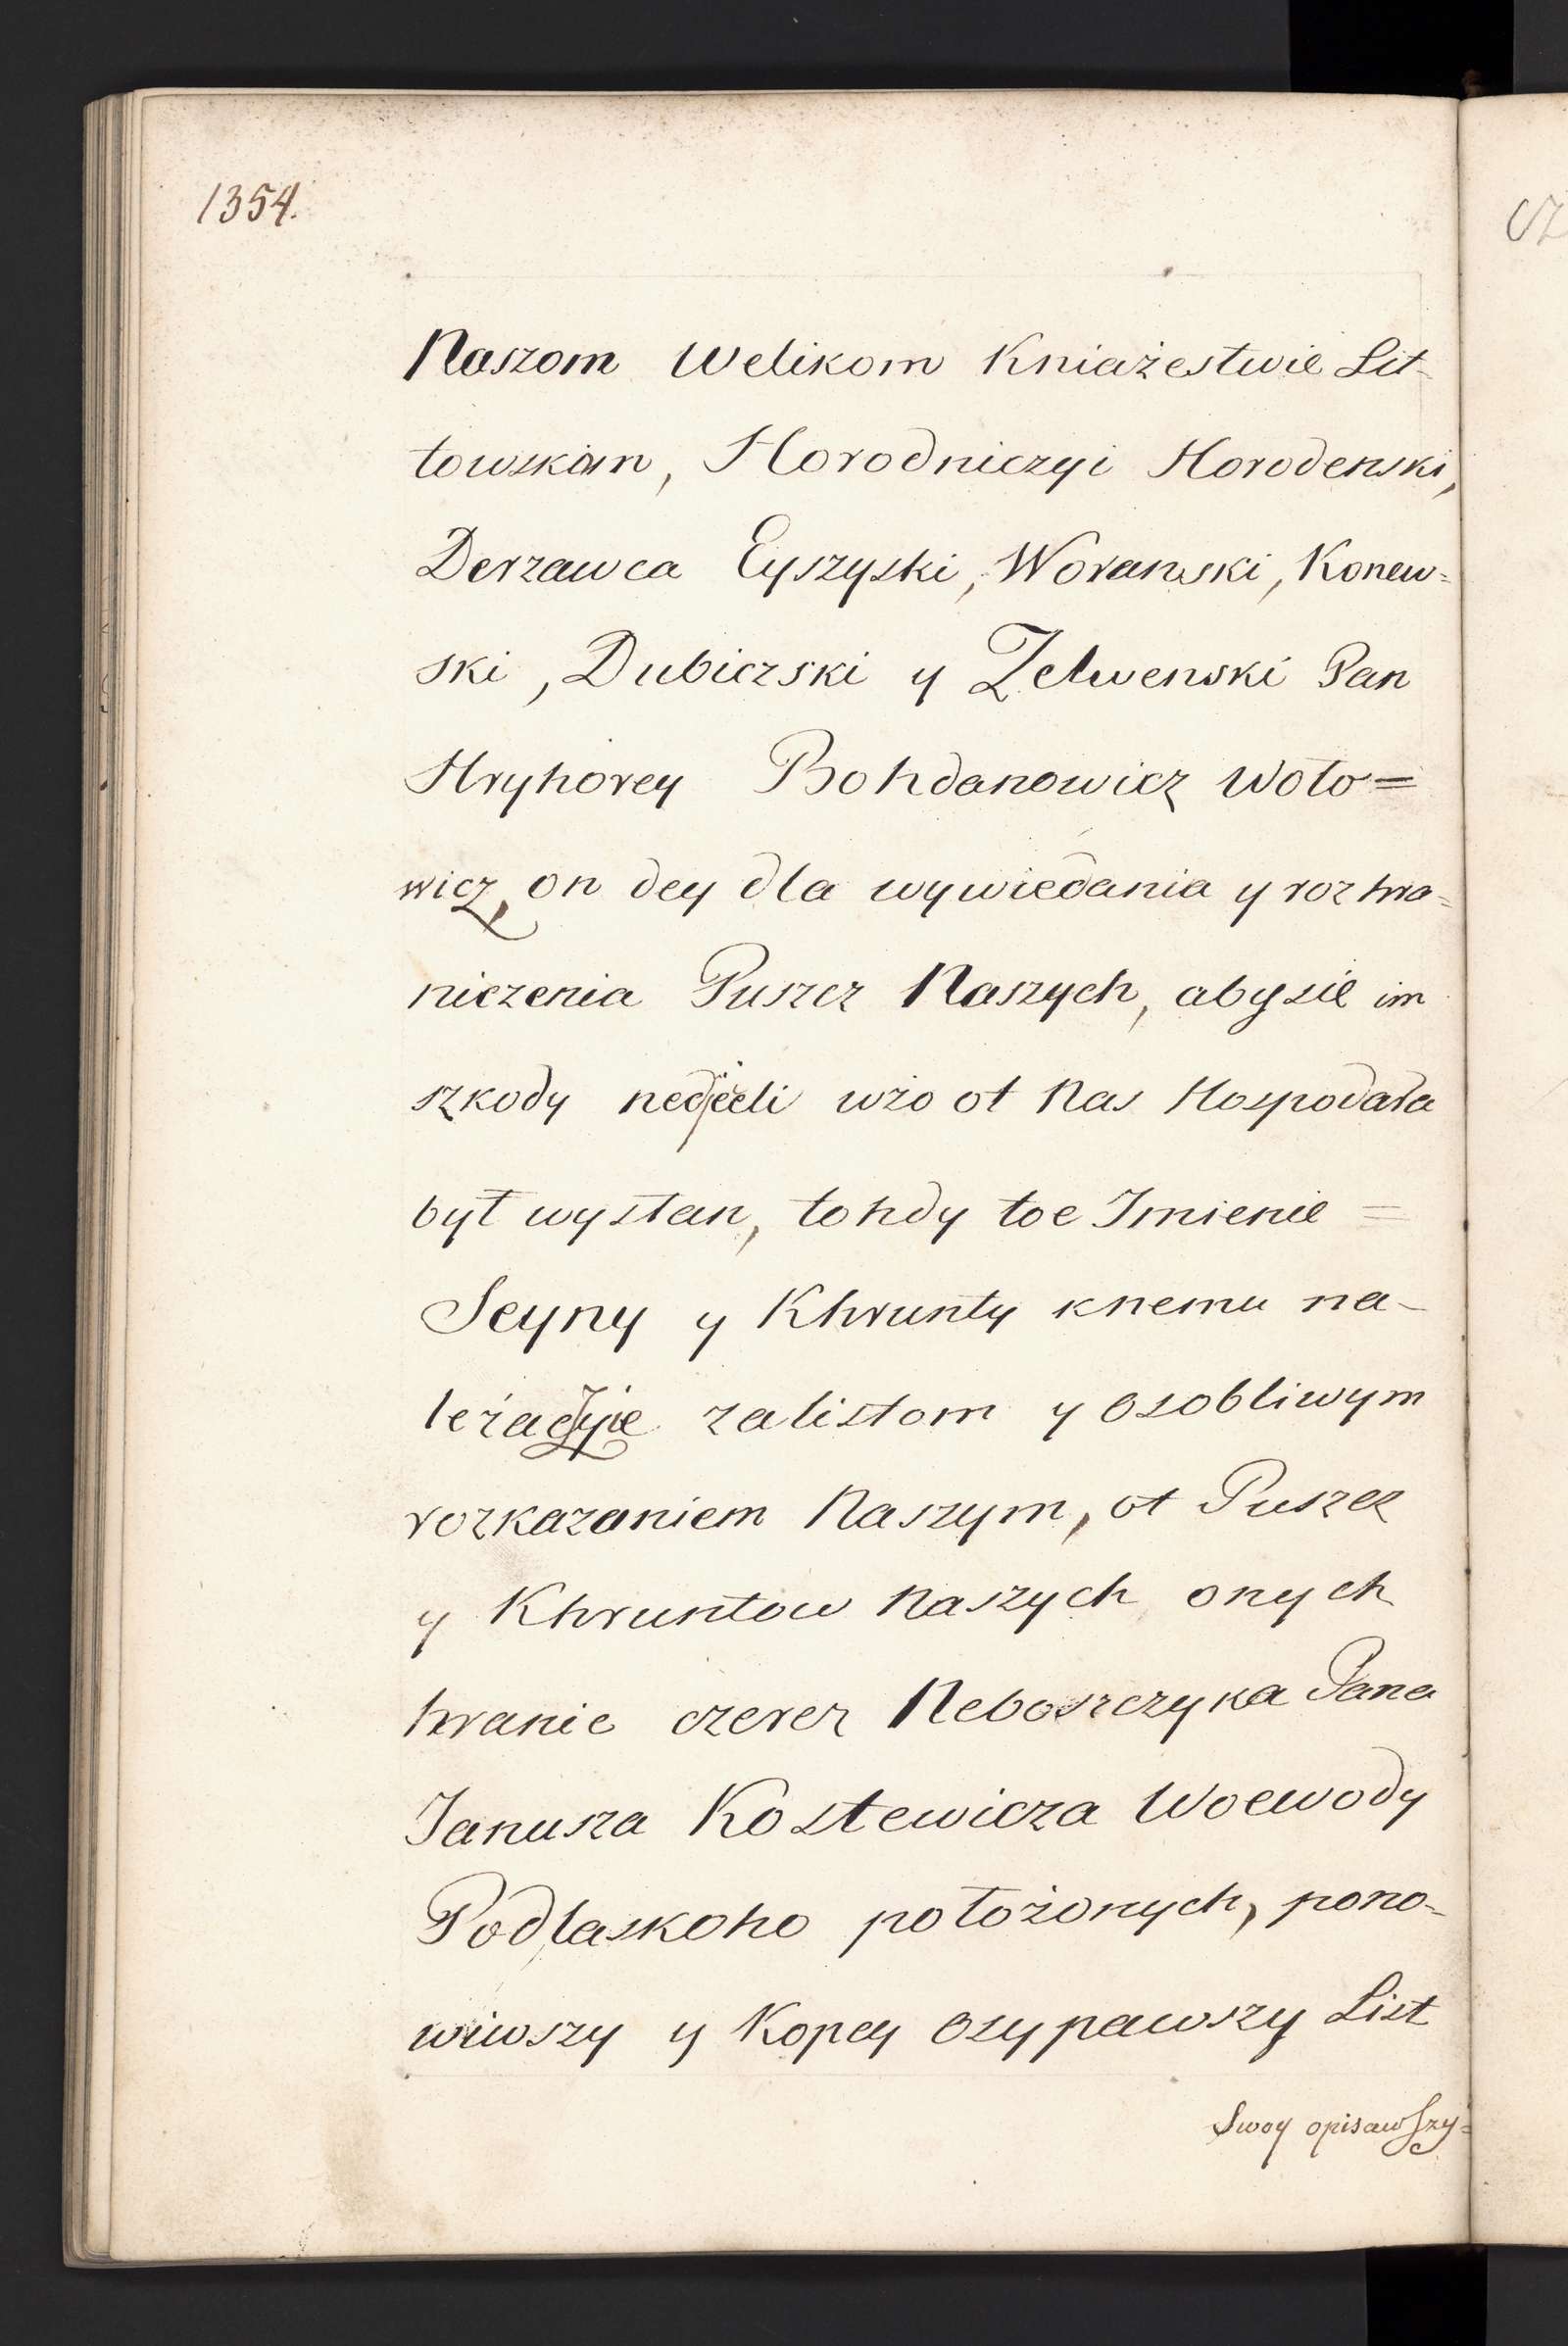 1354.
Naszom Welikom Kniażestwie Lit-
towskom, Horodniczyi Horodenski,
Derzawca Eyszyski, Woranski, Konew=
ski, Dubiczski y Zelwenski Pan
Hryhorey Bohdanowicz Woło=
wicz, on dey dla wywiedania y rozhra=
niczenia Puszcz Naszych, aby sie im
szkody ot Nas Hospodara
był wysłan, tohdy toe Imienie =
Seyny y Khrunty knemu na-
za listom y osobliwym
rozkazaniem Naszym, ot Puszcz
y Khruntow Naszych onych
hranic czerez Neboszczyka Pana
Janusza Kostewicza Woewody
Podlaskoho położonych, pono-
wiwszy y Kopcy osypawszy List
Swoy opisawszy=